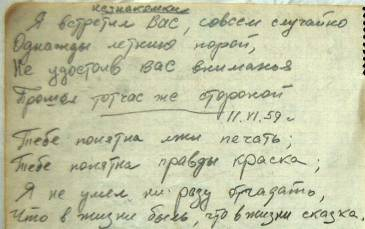 незнакомка
Я встретил Вас, совсем случайно
Однажды летнию порой,
Не удостоив Вас вниманья
Прошел тотчас же стороной
11.VI.59 г
Тебе понятна лжи печать;
Тебе понятна правды краска;
Я не умел ни разу отгадать,
Что в жизни быль, что в жизни сказка.